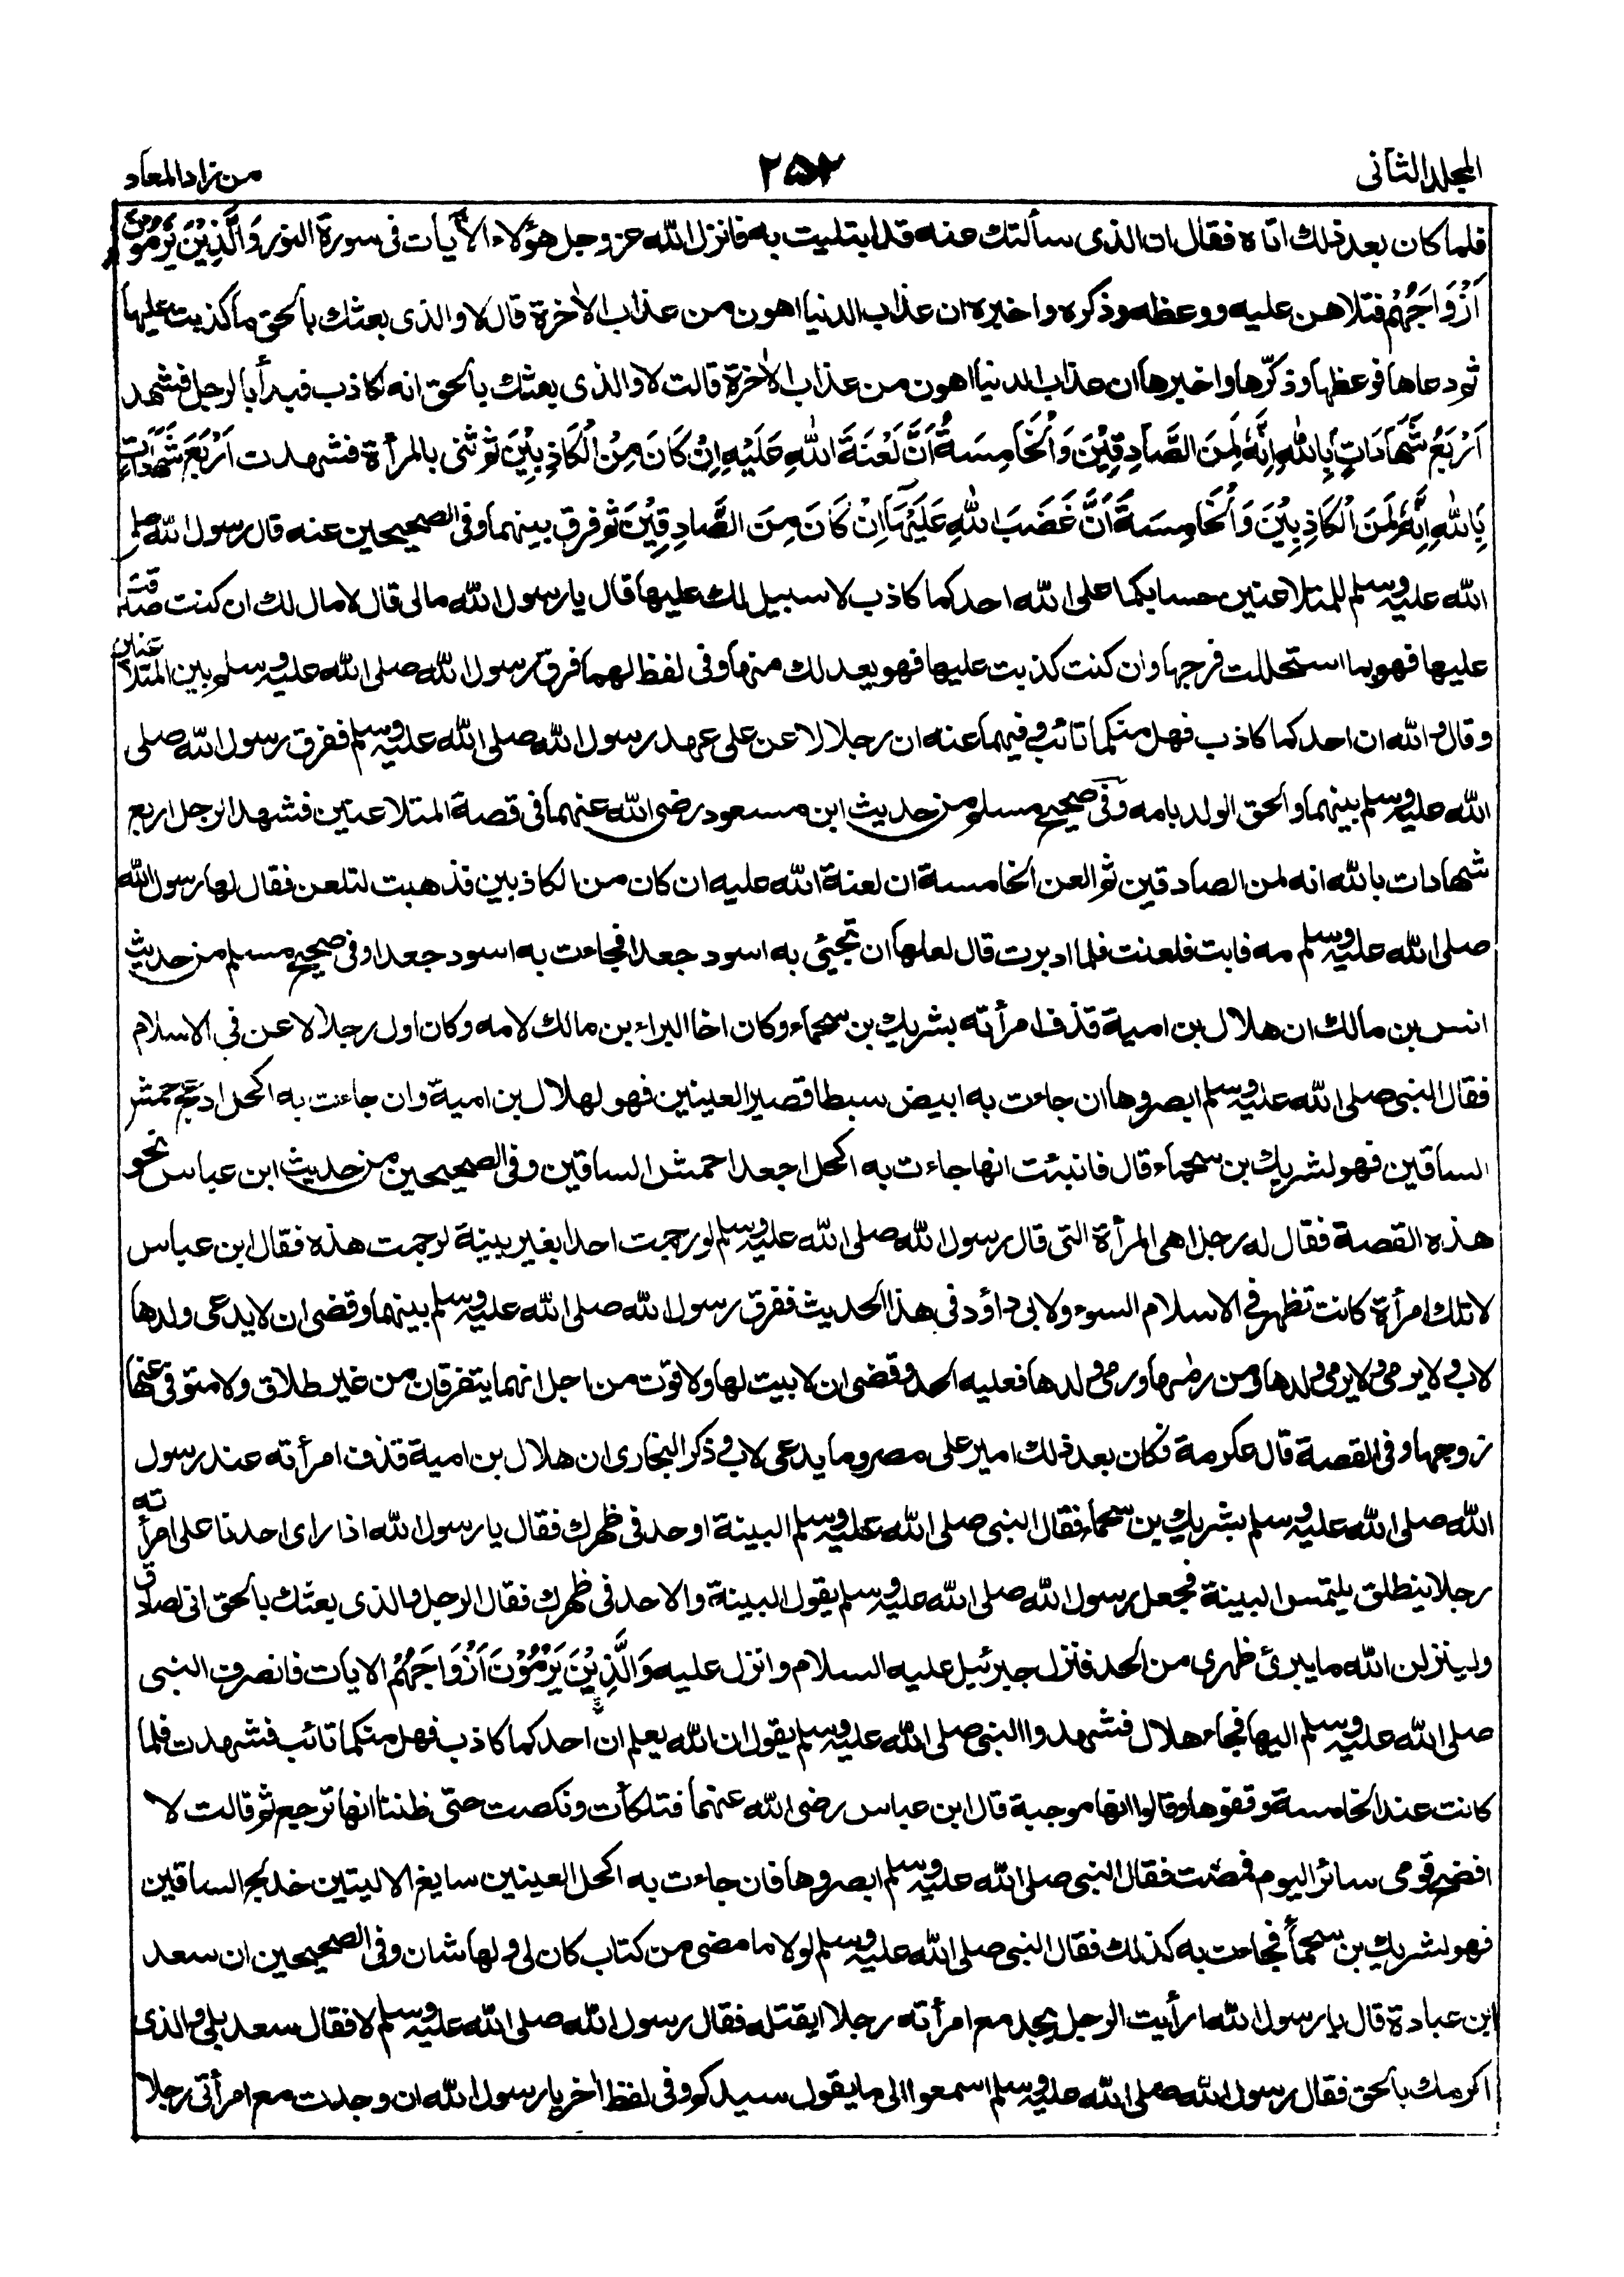 المجلد الثانى
٢٥٢
من زاد المعاد
فلما كان بعد ذلك اتاه فقال ان الذى سألتك عنه قد ابتليت به فانزل الله عز وجل هؤلاء الآيات فى سورة النور وَالَّذِيْنَ يَرْمُوْنَ
اَزْوَاجَهُمْ فتلاهن عليه ووعظه وذكره واخبره ان عذاب الدنيا اهون من عذاب الاٰخرة قال لا والذى بعثك بالحق ما كذبت عليها
ثم دعاها فوعظها وذكّرها واخبرها ان عذاب الدنيا اهون من عذاب الاٰخرة قالت لا والذى بعثك بالحق انه لكاذب فبدأ بالرجل فشهد
اَرْبَعَ شَهَادَاتٍ بِاللهِ اِنَّهُ لَمِنَ الصَّادِقِيْنَ وَالْخَامِسَةُ اَنَّ لَعْنَةَ اللهِ عَلَيْهِ اِنْ كَانَ مِنَ الْكَاذِبِيْنَ ثم ثنى بالمرأة فشهدت اَرْبَعَ شَهَادَاتٍ
بِاللهِ اِنَّهُ لَمِنَ الْكَاذِبِيْنَ وَالْخَامِسَةَ اَنَّ غَضَبَ اللهِ عَلَيْهَا اِنْ كَانَ مِنَ الصَّادِقِيْنَ ثم فرق بينهما وفى الصحيحين عنه قال رسول الله صلى
الله عليه وسلم للمتلاعنين حسابكما على الله احدكما كاذب لا سبيل لك عليها قال يا رسول الله مالى قال لا مال لك ان كنت صدقت
عليها فهو بما استحللت فرجها وان كنت كذبت عليها فهو بعد لك منها وفى لفظ لهما فرق رسول الله صلى الله عليه وسلم بين المتلاعنين
وقال والله ان احدكما كاذب فهل منكما تائب وفيهما عنه ان رجلا لاعن على عهد رسول الله صلى الله عليه وسلم ففرق رسول الله صلى
الله عليه وسلم بينهما والحق الولد بامه وفى صحيح مسلم من حديث ابن مسعود رضى الله عنهما فى قصة المتلاعنين فشهد الرجل اربع
شهادات بالله انه لمن الصادقين ثم لعن الخامسة ان لعنة الله عليه ان كان من الكاذبين فذهبت لتلعن فقال لها رسول الله
صلى الله عليه وسلم مه فابت فلعنت فلما ادبرت قال لعلها ان تجئى به اسود جعدا فجاءت به اسود جعدا وفى صحيح مسلم من حديث
انس بن مالك ان هلال بن امية قذف امرأته بشريك بن سحماء وكان اخا البراء بن مالك لامه وكان اول رجل لاعن فى الاسلام
فقال النبى صلى الله عليه وسلم ابصروها ان جاءت به ابيض سبطا قصير العينين فهو لهلال بن امية وان جاءت به اكحل ادعج حمش
الساقين فهو لشريك بن سحماء قال فانبئت انها جاءت به اكحل جعدا حمش الساقين وفى الصحيحين من حديث ابن عباس نحو
هذه القصة فقال له رجل اهى المرأة التى قال رسول الله صلى الله عليه وسلم لو رجمت احدا بغير بينة لرجمت هذه فقال ابن عباس
لا تلك امرأة كانت تظهر فى الاسلام السوء ولابى داؤد فى هذا الحديث ففرق رسول الله صلى الله عليه وسلم بينهما وقضى ان لا يدعى ولدها
لاب ولا يرمى ولا يرمى ولدها ومن رماها ورمى ولدها فعليه الحد وقضى ان لا بيت لها ولا قوت من اجل انهما يتفرقان من غير طلاق ولا متوفى عنها
زوجها وفى القصة قال عكرمة فكان بعد ذلك امير على مصر وما يدعى لاب وذكر البخارى ان هلال بن امية قذف امرأته عند رسول
الله صلى الله عليه وسلم بشريك بن سحماء فقال النبى صلى الله عليه وسلم البينة او حد فى ظهرك فقال يا رسول الله اذا راى احدنا على امرأته
رجلا ينطلق يلتمس البينة فجعل رسول الله صلى الله عليه وسلم يقول البينة والا حد فى ظهرك فقال الرجل والذى بعثك بالحق انى لصادق
ولينزلن الله ما يبرئ ظهرى من الحد فنزل جبرئيل عليه السلام وانزل عليه وَالَّذِيْنَ يَرْمُوْنَ اَزْوَاجَهُمْ الايات فانصرف النبى
صلى الله عليه وسلم اليها فجاء هلال فشهد والنبى صلى الله عليه وسلم يقول ان الله يعلم ان احدكما كاذب فهل منكما تائب فشهدت فلما
كانت عند الخامسة وقفوها وقالوا انها موجبة قال ابن عباس رضى الله عنهما فتلكأت ونكصت حتى ظننا انها ترجع ثم قالت لا
افضح قومى سائر اليوم فمضت فقال النبى صلى الله عليه وسلم ابصروها فان جاءت به اكحل العينين سابغ الاليتين خدلج الساقين
فهو لشريك بن سحماء فجاءت به كذلك فقال النبى صلى الله عليه وسلم لولا ما مضى من كتاب كان لى ولها شان وفى الصحيحين ان سعد
ابن عبادة قال يا رسول الله ارأيت الرجل يجد مع امرأته رجلا ايقتله فقال رسول الله صلى الله عليه وسلم لا فقال سعد بلى والذى
اكرمك بالحق فقال رسول الله صلى الله عليه وسلم اسمعوا الى ما يقول سيدكم وفى لفظ اٰخر يا رسول الله ان وجدت مع امرأتى رجلا